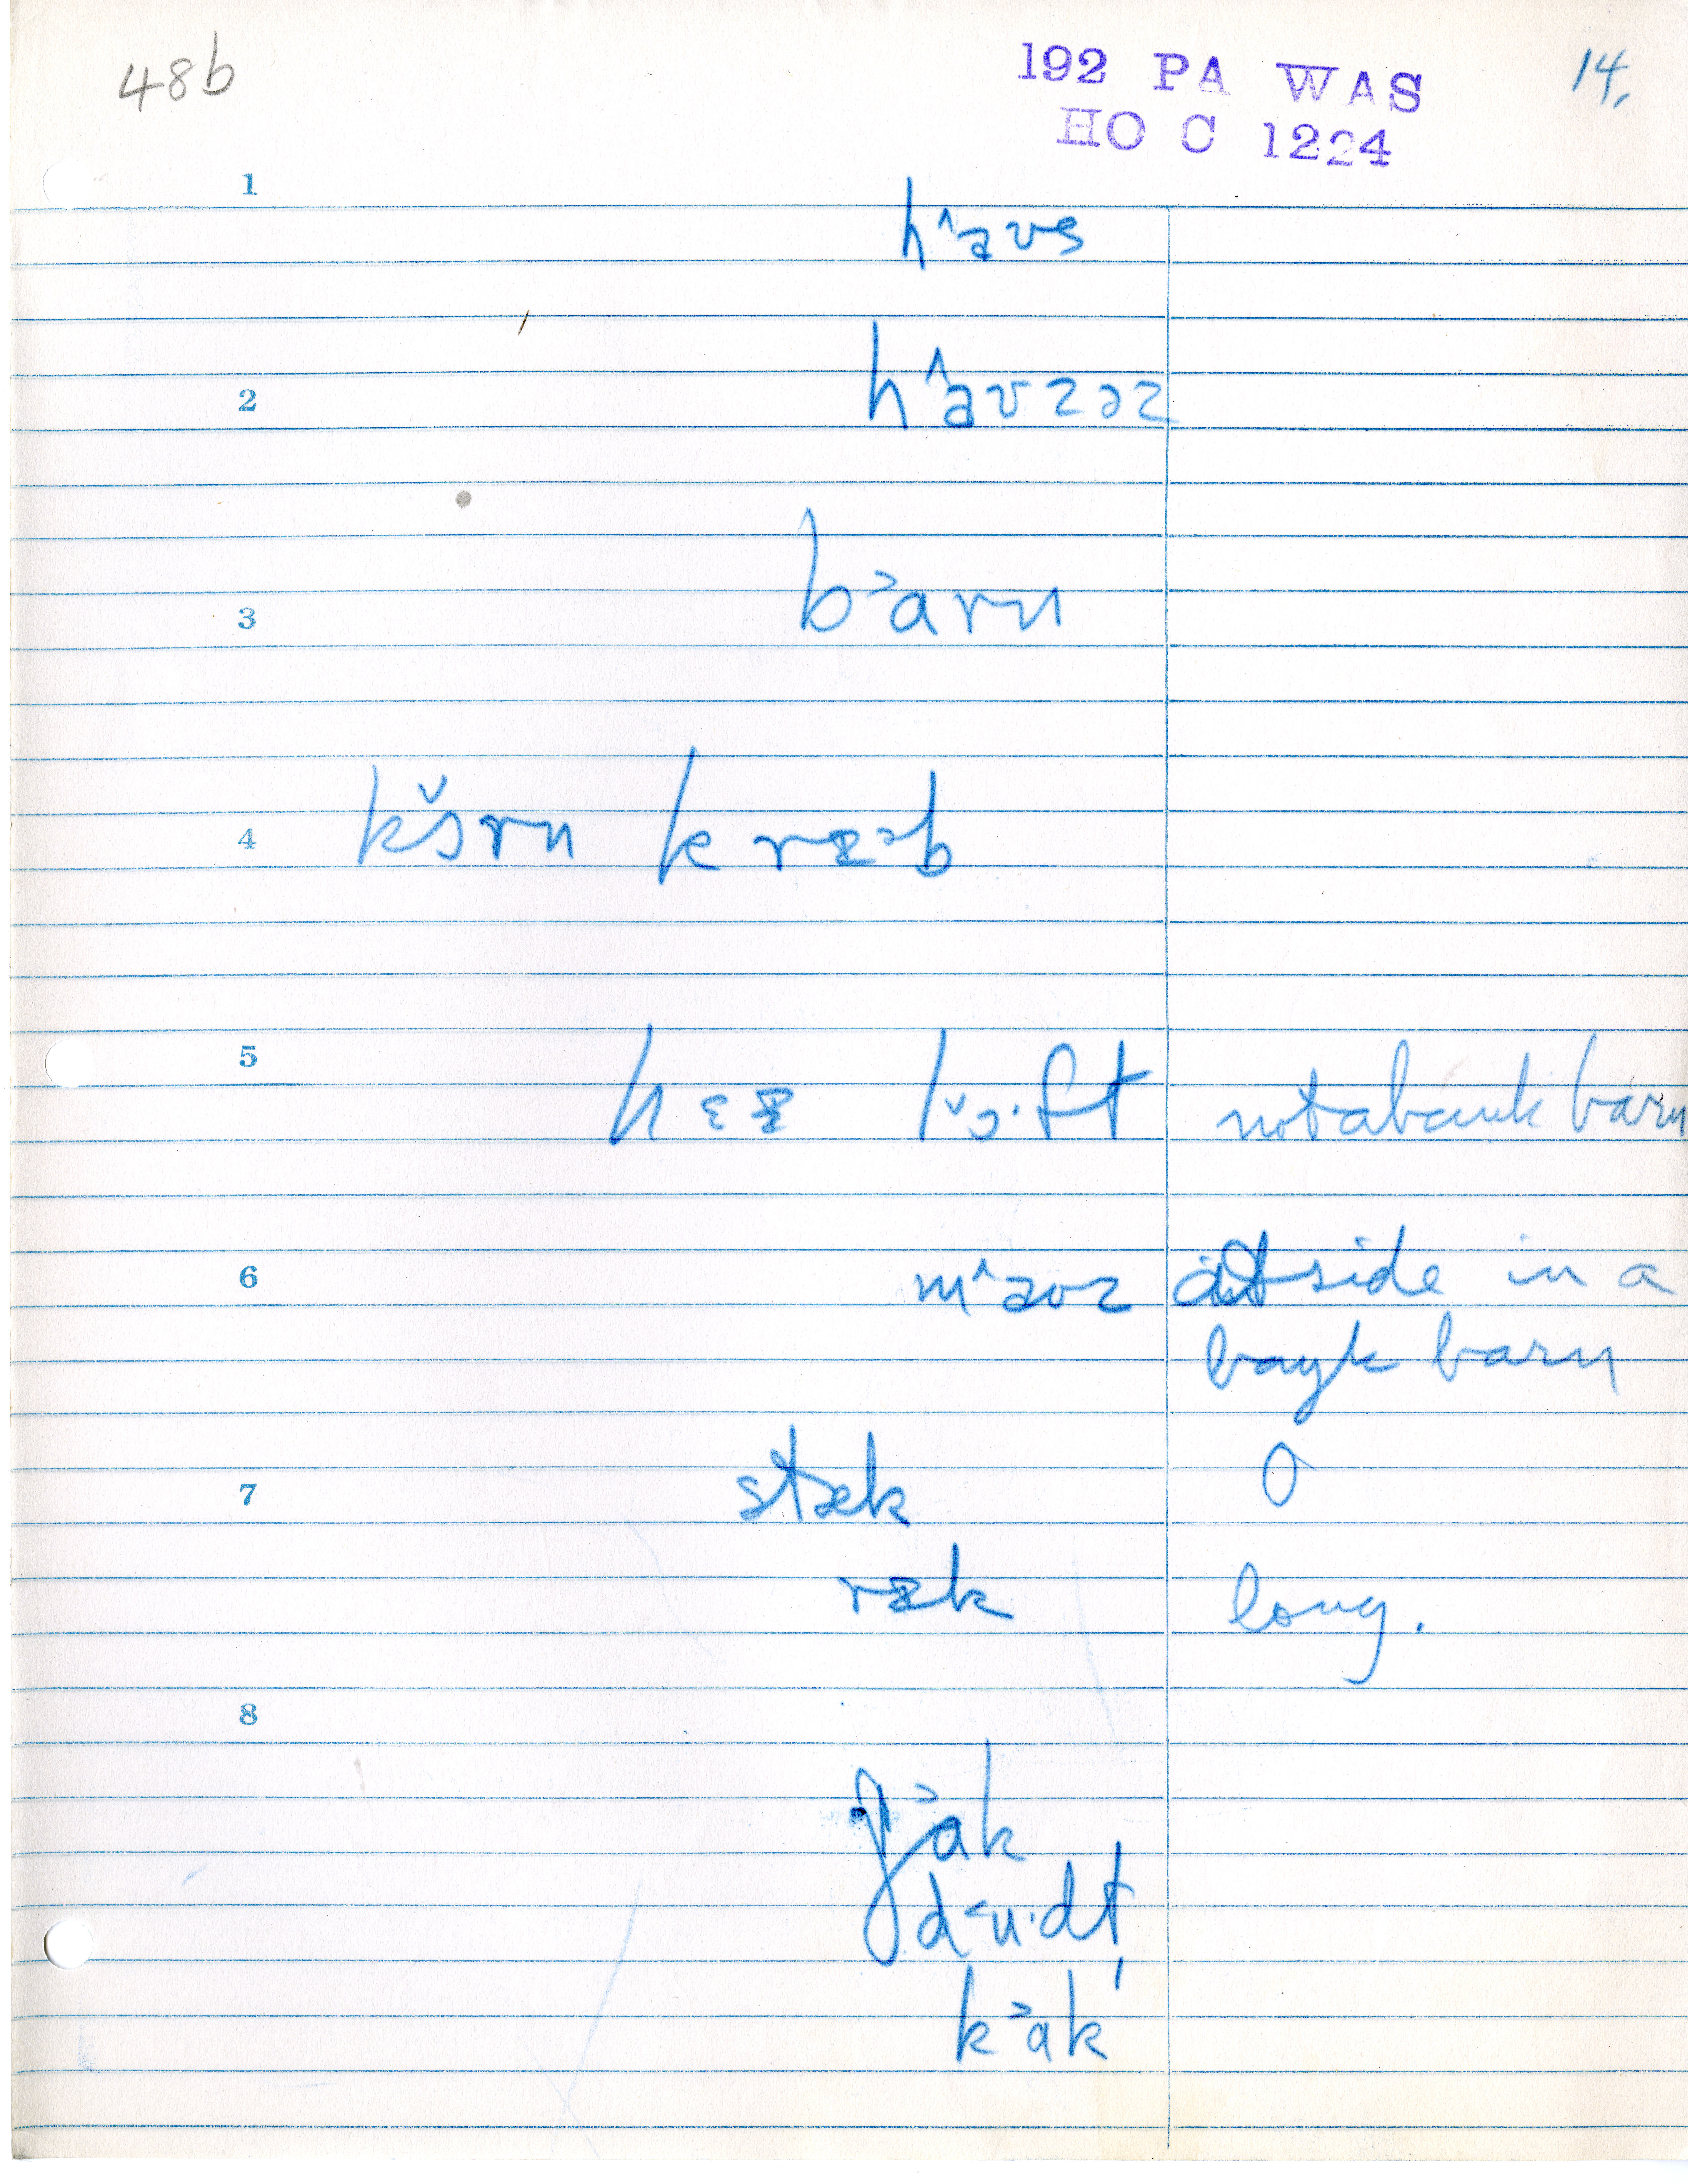 48b
192 PA WAS
HO C 1224
14.
1
h^əʊs
2
h^əʊzəz
3
b˃arn
4
kɔ̌rn kræᵊb
5
hɛæ lˇɔ·ft not a bank barn
6
m^əʊz outside in a
bank barn
7
stæk O
ræk long.
8
g˃ak
d˂u·dl̩
k˃ak